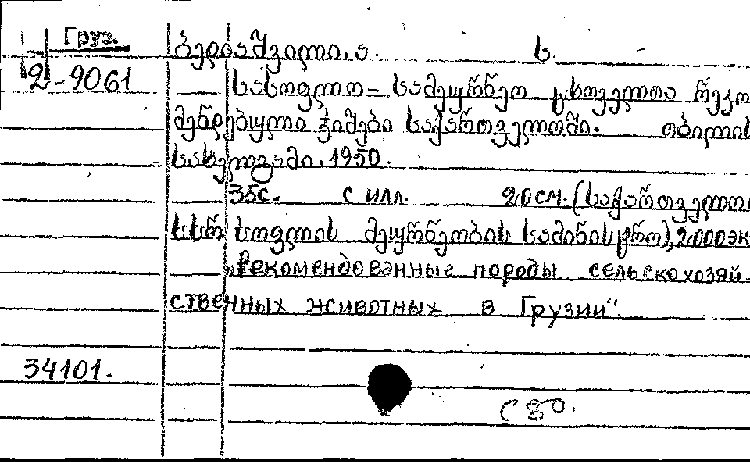 Груз.
2-9061
ბედიაშვილი. ა.
სასოფლო-სამეურნეო ცხოველთა რეკო
მენდებული ჯიშები საქართველოში. თბილის
სახელგამი. 1950.
35с. с илл. 20см. (საქართველო
სსრ სოფლის მეურნეობის სამინისტრო), 2000экз
„Рекомендованные породы сельскохозяй-
ственных животных в Грузии“.
34101.